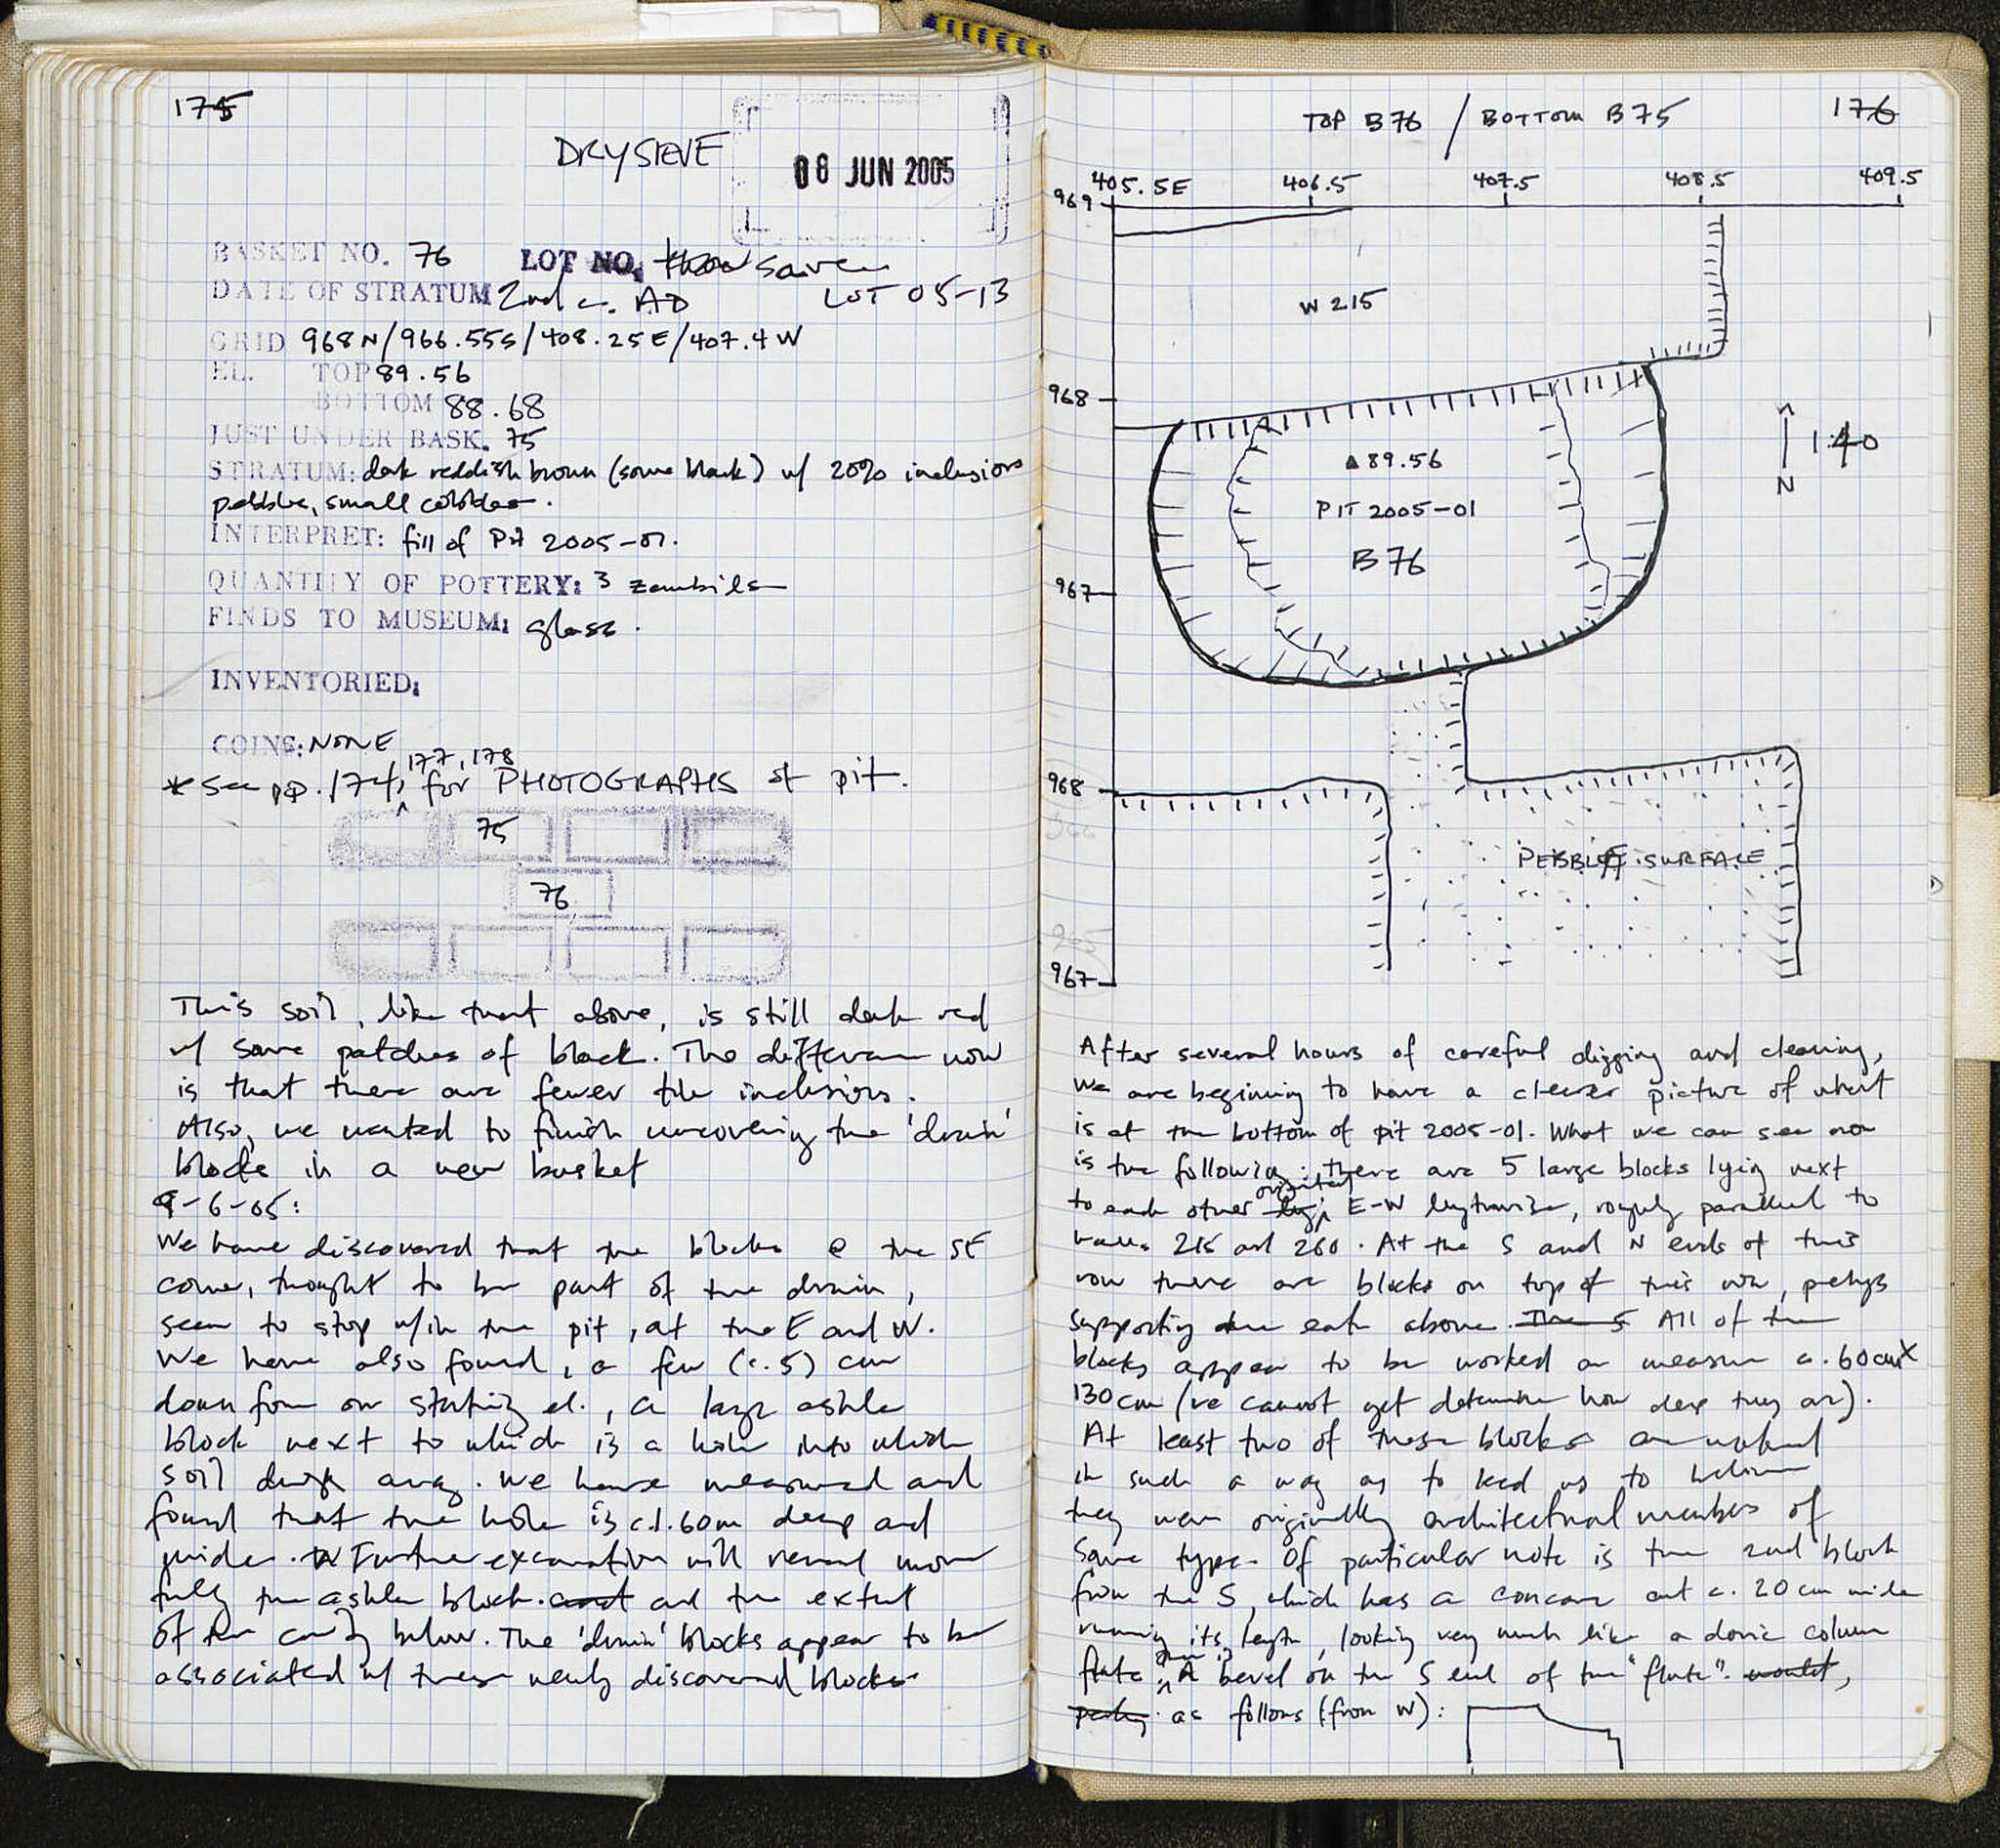 175
DRY SIEVE
08 JUN 2005
BASKET NO. 76 LOT NO. save
DATE OF STRATUM 2nd c. AD LOT 05-13
GRID 968N/966.55S/408.25E/407.4W
EL. TOP 89.56
BOTTOM 88.68
JUST UNDER BASK. 75
STRATUM: dark reddish brown (some black) w/ 20% inclusions
pebbles, small cobbles.
INTERPRET: fill of Pit 2005-01.
QUANTITY OF POTTERY: 3 zembils
FINDS TO MUSEUM: glass.
INVENTORIED:
COINS: NONE
* See pp. 174, 177, 178 for PHOTOGRAPHS of pit.
75
76
This soil, like that above, is still dark red
w/ some patches of black. The difference now
is that there are fewer tile inclusions.
Also, we wanted to finish uncovering the 'drain'
blocks in a new basket
9-6-05:
We have discovered that the blocks @ the SE
corner, thought to be part of the drain,
seem to stop w/in the pit, at the E and W.
We have also found, a few (c. 5) cm
down from our starting el., a large ashlar
block next to which is a hole into which
soil drops away. We have measured and
found that the hole is c. 1.60m deep and
wider. Further excavation will reveal more
fully the ashlar block and the extent
of the cavity below. The 'drain' blocks appear to be
associated w/ these newly discovered blocks
176
TOP B76 / BOTTOM B75
405.5E 406.5 407.5 408.5 409.5
969
W 215
968
▲89.56
PIT 2005-01
B76
N
1:40
967
968
PEBBLE SURFACE
967
After several hours of careful digging and cleaning,
we are beginning to have a clearer picture of what
is at the bottom of pit 2005-01. What we can see now
is the following: there are 5 large blocks lying next
to each other oriented E-W lengthwise, roughly parallel to
walls 215 and 260. At the S and N ends of this
row there are blocks on top of this row, perhaps
supporting the earth above. The 5 All of the
blocks appear to be worked and measure c. 60cm x
130cm (we cannot yet determine how deep they are).
At least two of these blocks are worked
in such a way as to lead us to believe
they were originally architectural members of
some type. Of particular note is the 2nd block
from the S, which has a concave cut c. 20cm wide
running its length, looking very much like a doric column
flute. There is A bevel on the S end of the "flute". would,
perhaps as follows (from W):